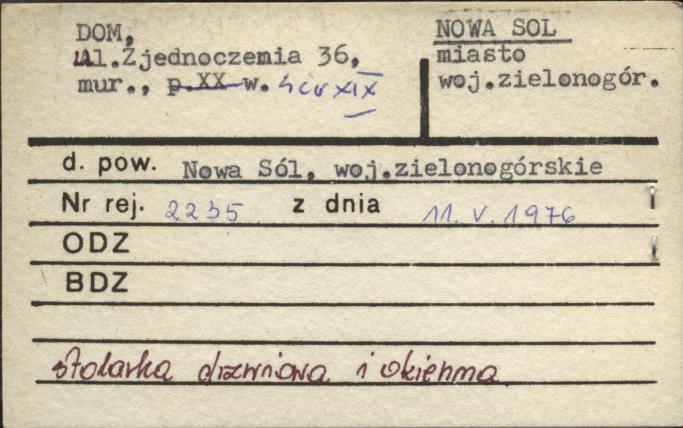 DOM,
ul.Zjednoczenia 36,
mur., p.XX w. 4 ćw XIX
NOWA SOL
miasto
woj.zielonogór.
d. pow. Nowa Sól, woj.zielonogórskie
Nr rej. 2235 z dnia 11. V. 1976
ODZ
BDZ
stolarka drzwiowa i okienna